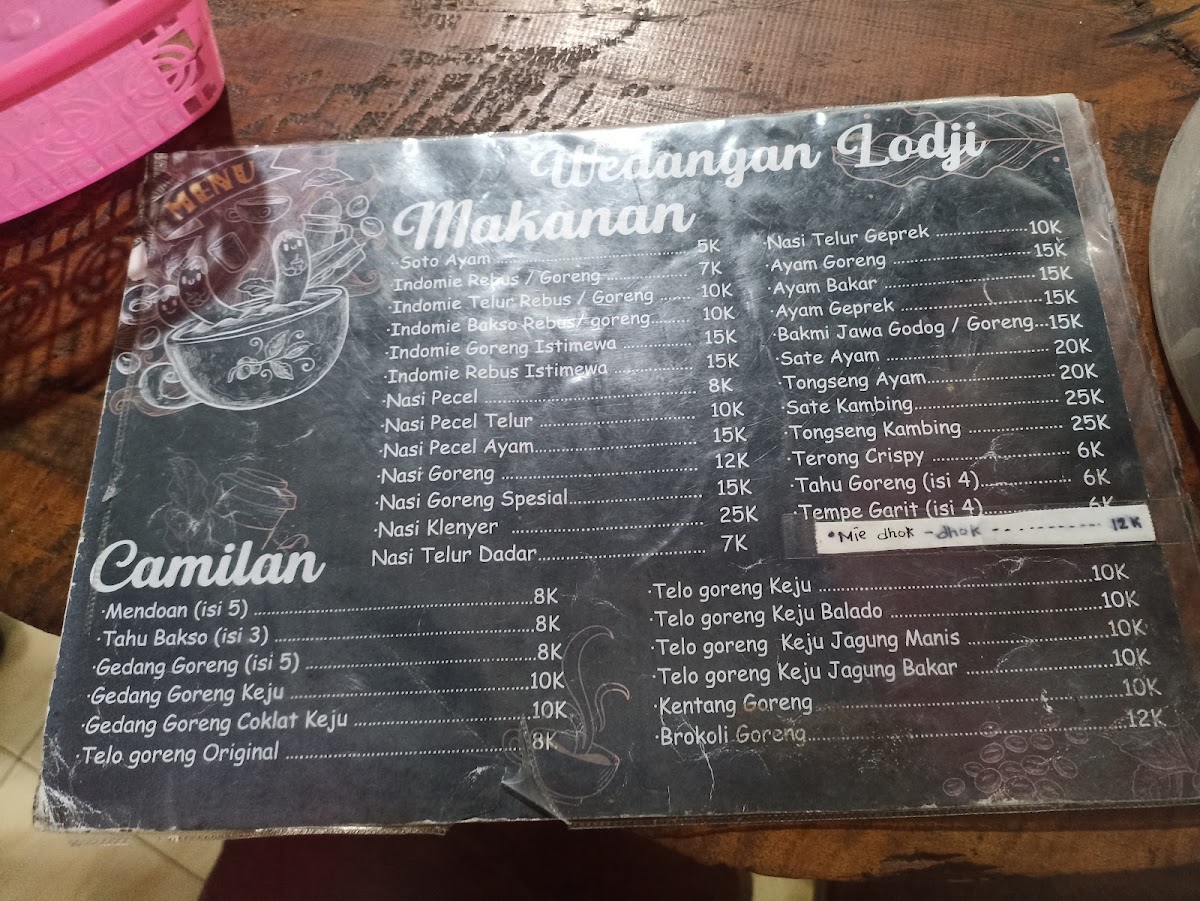 MENU
Wedangan Lodji
Makanan
·Soto Ayam ........ 5K
·Indomie Rebus / Goreng ........ 7K
·Indomie Telur Rebus / Goreng ........ 10K
·Indomie Bakso Rebus/ goreng........ 10K
·Indomie Goreng Istimewa ........ 15K
·Indomie Rebus Istimewa ........ 15K
·Nasi Pecel ........ 8K
·Nasi Pecel Telur ........ 10K
·Nasi Pecel Ayam........ 15K
·Nasi Goreng ........ 12K
·Nasi Goreng Spesial........ 15K
·Nasi Klenyer ........ 25K
Nasi Telur Dadar........ 7K
·Nasi Telur Geprek ........ 10K
·Ayam Goreng ........ 15K
·Ayam Bakar ........ 15K
·Ayam Geprek ........ 15K
·Bakmi Jawa Godog / Goreng...15K
·Sate Ayam ........ 20K
·Tongseng Ayam........ 20K
·Sate Kambing........ 25K
·Tongseng Kambing ........ 25K
·Terong Crispy ........ 6K
·Tahu Goreng (isi 4)........ 6K
·Tempe Garit (isi 4)........ 6K
•Mie dhok - dhok ------------ 12K
Camilan
·Mendoan (isi 5) ........ 8K
·Tahu Bakso (isi 3) ........ 8K
·Gedang Goreng (isi 5) ........ 8K
·Gedang Goreng Keju ........ 10K
·Gedang Goreng Coklat Keju ........ 10K
·Telo goreng Original ........ 8K
·Telo goreng Keju ........ 10K
·Telo goreng Keju Balado ........ 10K
·Telo goreng Keju Jagung Manis ........ 10K
·Telo goreng Keju Jagung Bakar ........ 10K
·Kentang Goreng ........ 10K
·Brokoli Goreng........ 12K